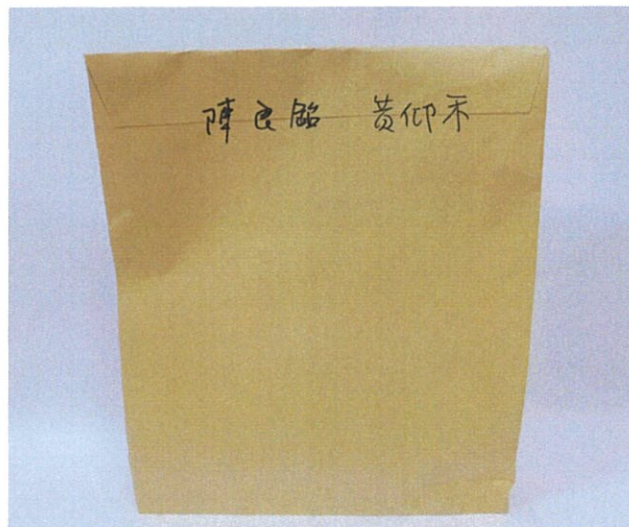 陳良銘 黃仰禾